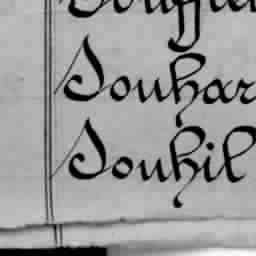 Souhar
Souhil